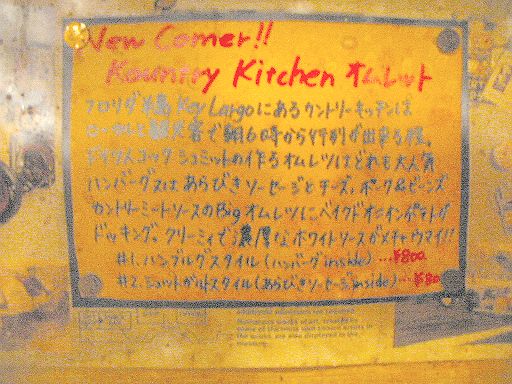 New Comer!!
Kountry Kitchen オムレット
フロリダ半島 Key Largoにあるカントリーキッチンは
ローカルと観光客で朝6時から行列が出来る程。
ドイツ人コック シュミットの作るオムレツはどれも大人気
ハンバーグスはあらびきソーセージとチーズ、ポーク&ビーンズ
カントリーミートソースのBigオムレツにベイクドオニオンポテトが
ドッキング。クリーミィで濃厚なホワイトソースがメチャウマイ!!
#1. ハンブルグスタイル(ハンバーグinside)…¥800
#2. スタイル(あらびきソーセージinside)…¥80